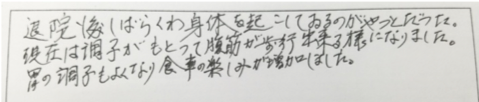 退院後しばらくわ身体を起こしておるのがやっとだった。
現在は調子がもどって腹筋が歩行出来る様になりました。
胃の調子もよくなり食事の楽しみが増加しました。